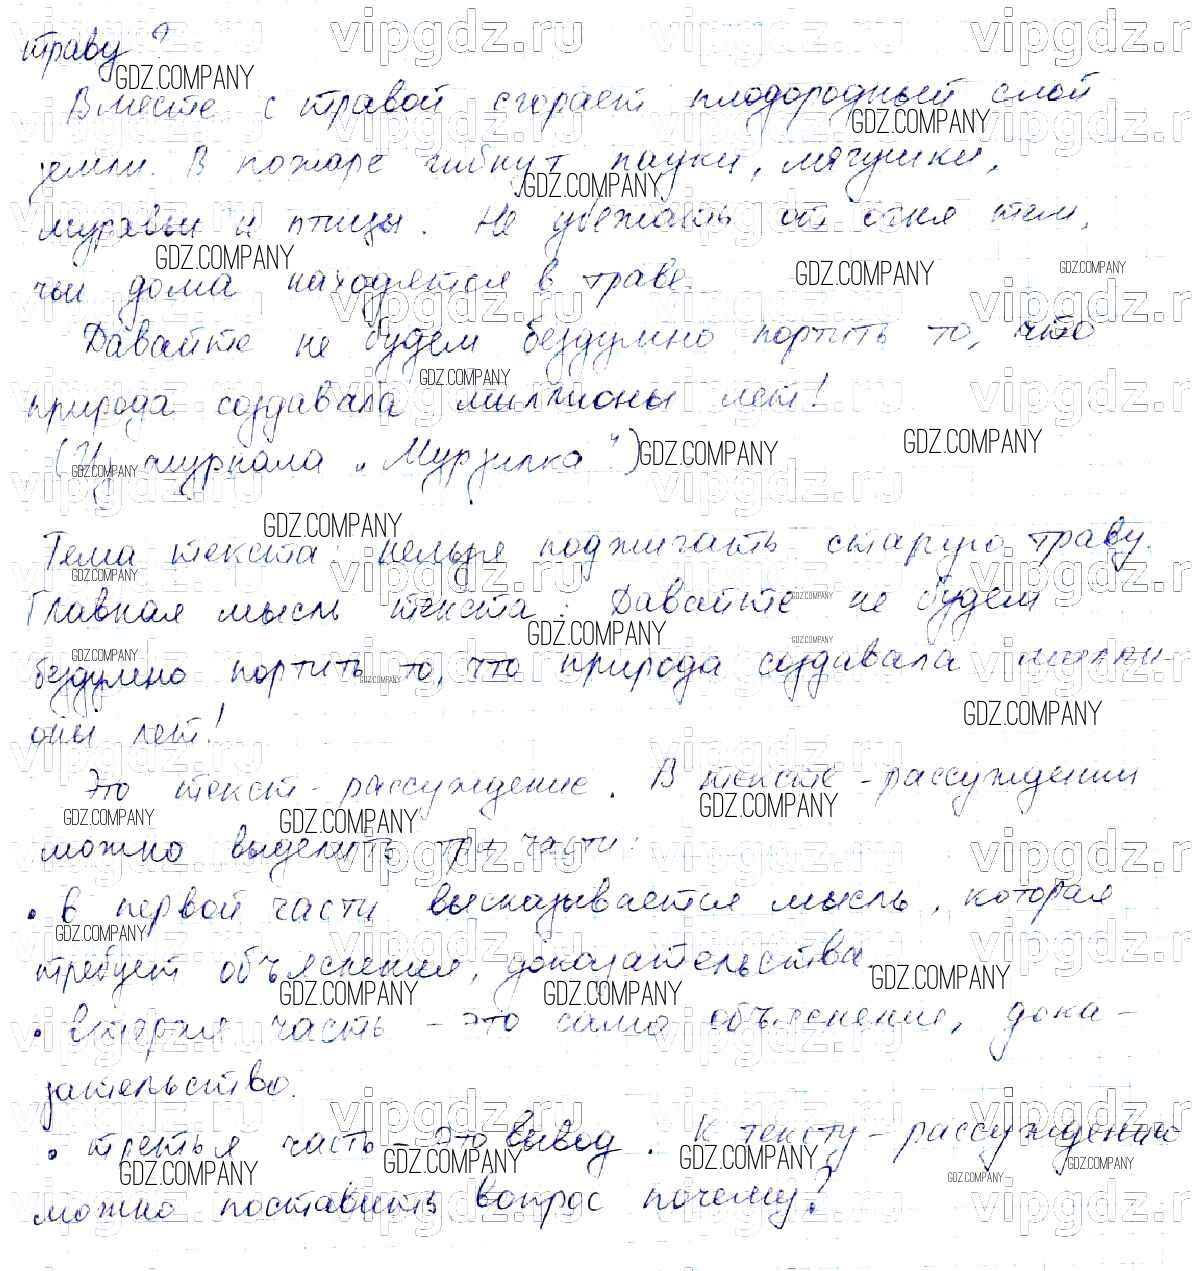 траву?
Вместе с травой сгорает плодородный слой
земли. В пожаре гибнут пауки, лягушки,
муравьи и птицы. Не убежать от огня тем,
чьи дома находятся в траве.
Давайте не будем бездумно портить то, что
природа создавала миллионы лет!
(Из журнала „Мурзилка")
Тема текста: нельзя поджигать старую траву.
Главная мысль текста: Давайте не будем
бездумно портить то, что природа создавала милли-
оны лет!
Это текст-рассуждение. В тексте-рассуждении
можно выделить три части:
• в первой части высказывается мысль, которая
требует объяснения, доказательства.
• вторая часть – это само объяснение, дока-
зательство.
• третья часть – это вывод. К тексту-рассуждению
можно поставить вопрос почему?
GDZ.COMPANY
vipgdz.ru